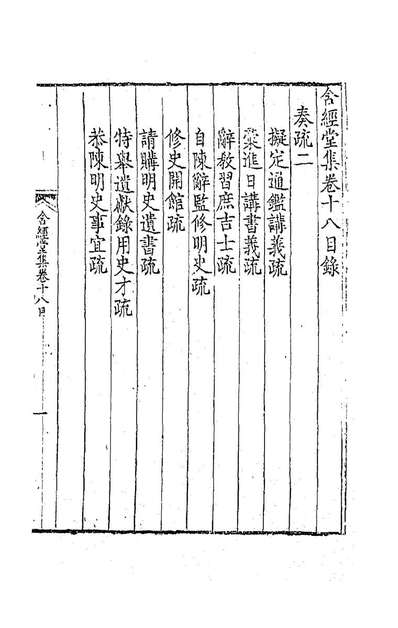 含經堂集卷十八目錄
奏疏二
擬定通鑑講義疏
彙進日講書義疏
辭敎習庶吉士疏
自陳辭監修明史疏
修史開館疏
請購明史遺書疏
特舉遺獻錄用史才疏
恭陳明史事宜疏
含經堂集卷十八目
一